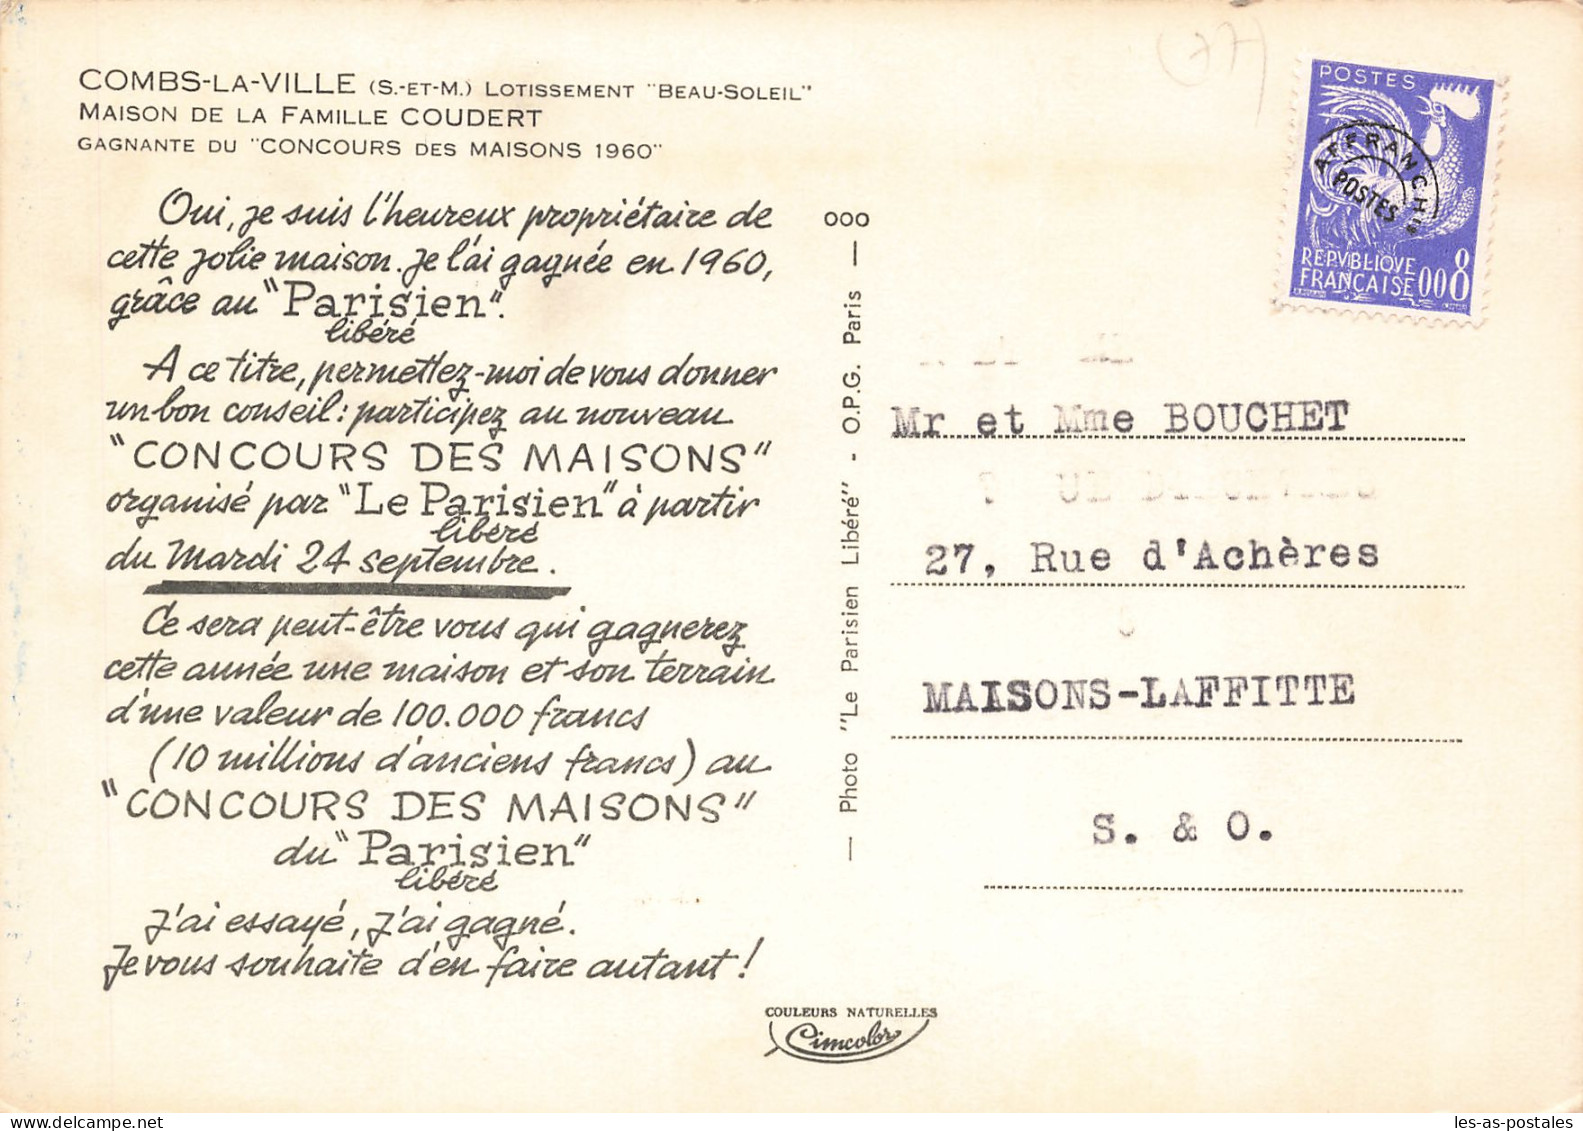 COMBS-LA-VILLE (S.-ET-M.) LOTISSEMENT "BEAU-SOLEIL"
MAISON DE LA FAMILLE COUDERT
GAGNANTE DU "CONCOURS DES MAISONS 1960"
Oui, je suis l'heureux propriétaire de
cette jolie maison. Je l'ai gagnée en 1960,
grâce au "Parisien".
libéré
A ce titre, permettez-moi de vous donner
un bon conseil : participez au nouveau
"CONCOURS DES MAISONS"
organisé par "Le Parisien" à partir
libéré
du Mardi 24 septembre.
Ce sera peut-être vous qui gagnerez
cette année une maison et son terrain
d'une valeur de 100.000 francs
(10 millions d'anciens francs) au
"CONCOURS DES MAISONS"
du "Parisien"
libéré
J'ai essayé, j'ai gagné.
Je vous souhaite d'en faire autant !
COULEURS NATURELLES
Cimcolor
000
— Photo "Le Parisien Libéré" - O.P.G. Paris —
(77)
POSTES
AFFRANCHts
POSTES
REPVBLIQVE
FRANÇAISE 008
Mr et Mme BOUCHET
27, Rue d'Achères
MAISONS-LAFFITTE
S. & O.
delcampe.net
les-as-postales